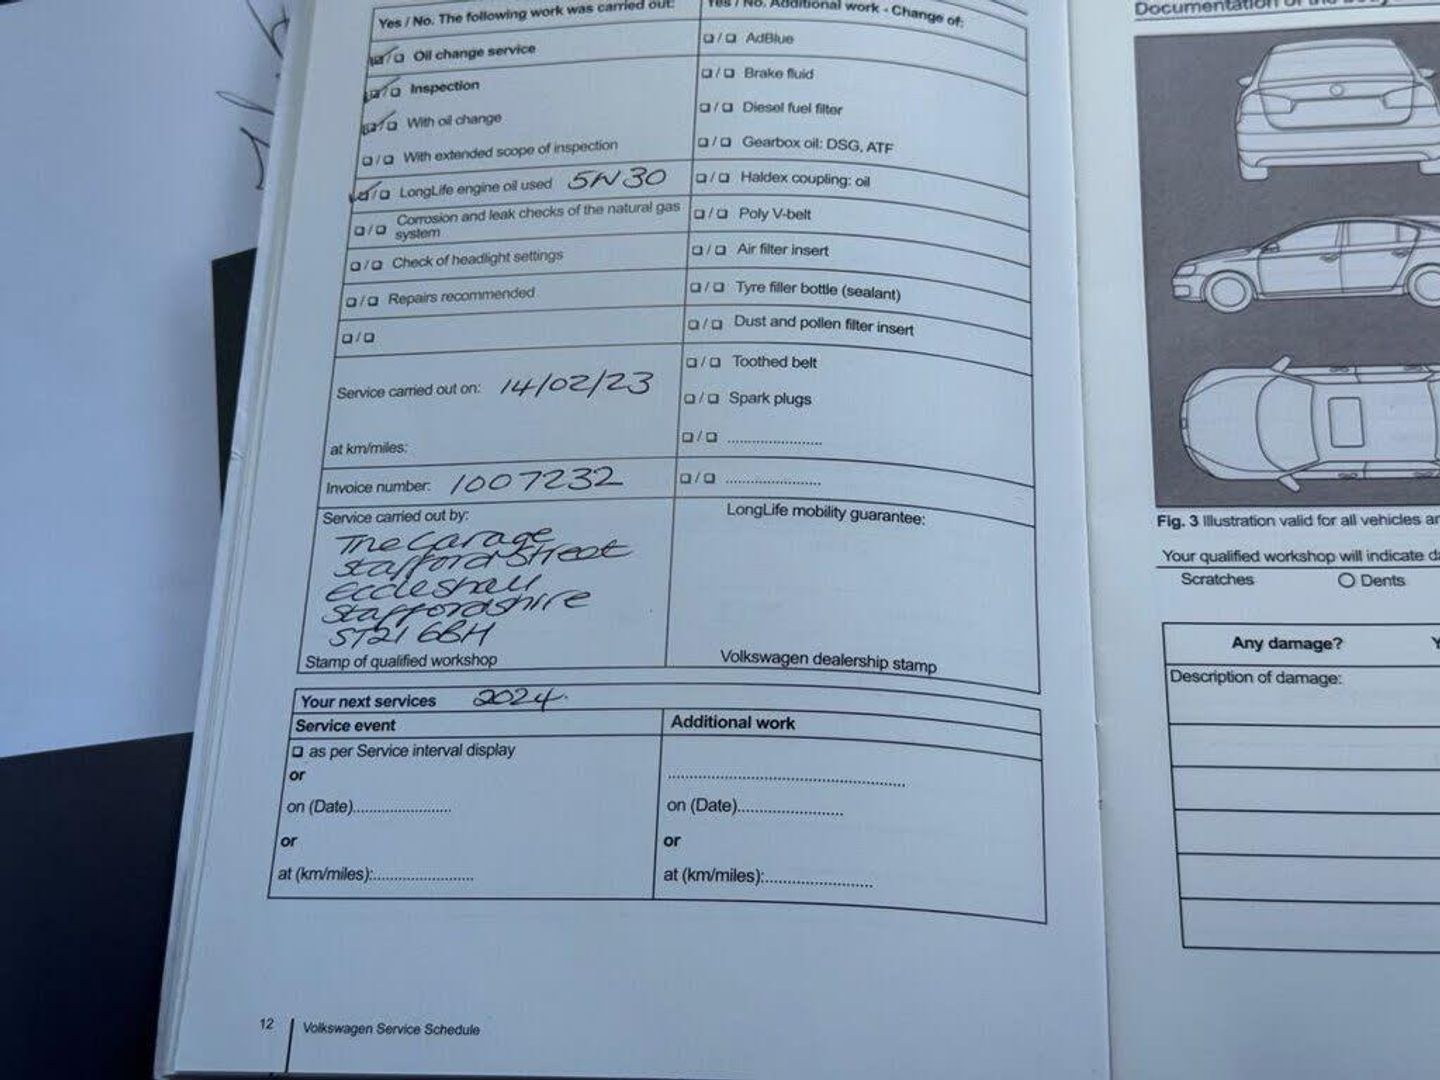 Yes / No. The following work was carried out:
☑/☐ Oil change service
☑/☐ Inspection
☑/☐ With oil change
☐/☐ With extended scope of inspection
☑/☐ LongLife engine oil used 5W30
☐/☐ Corrosion and leak checks of the natural gas
system
☐/☐ Check of headlight settings
☐/☐ Repairs recommended
☐/☐
Service carried out on: 14/02/23
at km/miles:
Invoice number: 1007232
Service carried out by:
The Garage
Stafford Street
Eccleshall
Staffordshire
ST21 6BH
Stamp of qualified workshop
Yes / No. Additional work - Change of:
☐/☐ AdBlue
☐/☐ Brake fluid
☐/☐ Diesel fuel filter
☐/☐ Gearbox oil: DSG, ATF
☐/☐ Haldex coupling: oil
☐/☐ Poly V-belt
☐/☐ Air filter insert
☐/☐ Tyre filler bottle (sealant)
☐/☐ Dust and pollen filter insert
☐/☐ Toothed belt
☐/☐ Spark plugs
☐/☐ ......................
☐/☐ ......................
LongLife mobility guarantee:
Volkswagen dealership stamp
Your next services 2024.
Service event
☐ as per Service interval display
or
on (Date).......................
or
at (km/miles):.......................
Additional work
.......................................................
on (Date)........................
or
at (km/miles):........................
12 Volkswagen Service Schedule
Documentation of the
Fig. 3 Illustration valid for all vehicles
Your qualified workshop will indicate
Scratches ○ Dents
Any damage?
Description of damage: